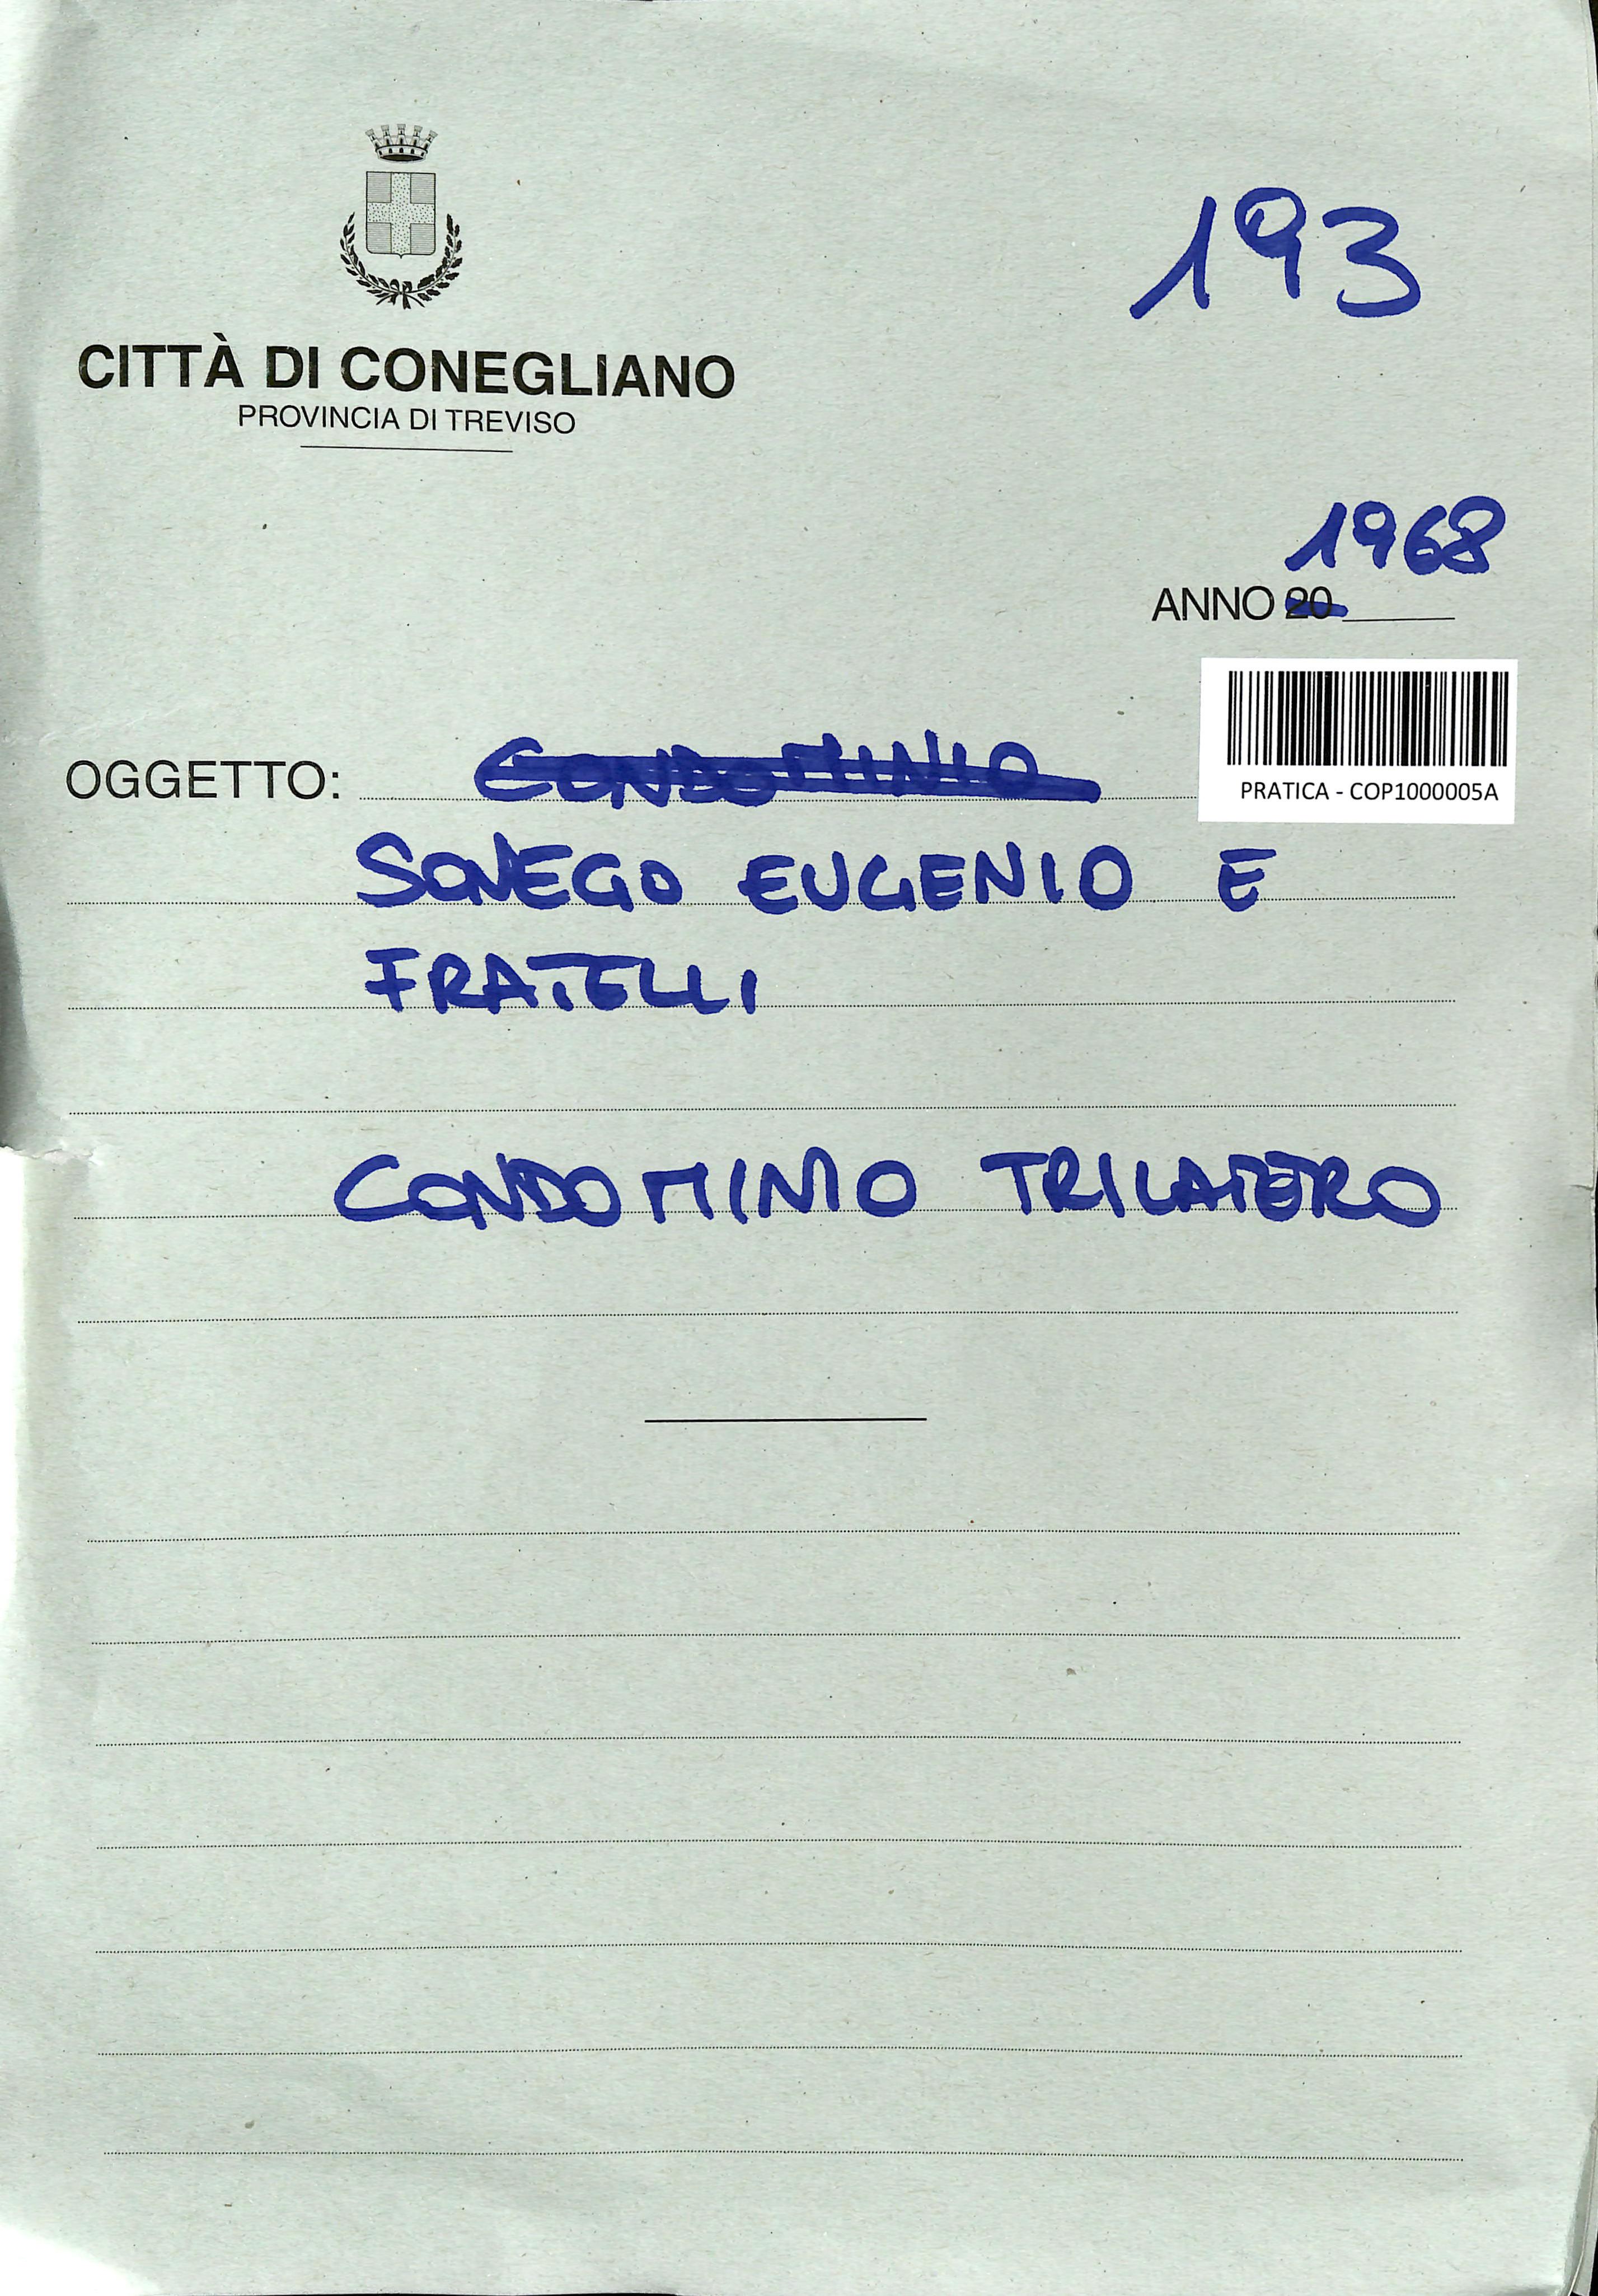 193
CITTÀ DI CONEGLIANO
PROVINCIA DI TREVISO
1968
ANNO 20
PRATICA - COP1000005A
OGGETTO: CONDOMINIO
SONEGO EUGENIO E
FRATELLI
CONDOMINIO TRILATERO